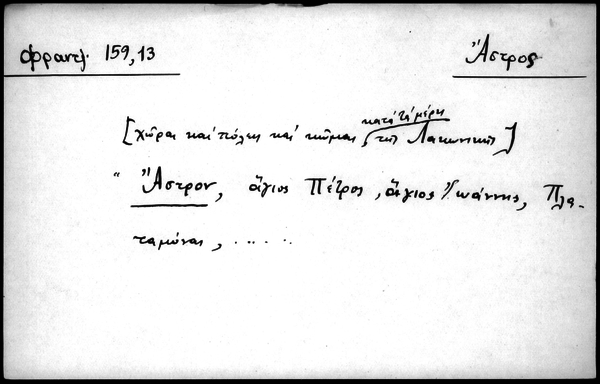 Φραντζ. 159,13
Ἄστρος
κατὰ τὰ μέρη
[χῶραι καὶ πόλεις καὶ κῶμαι τῆς Λακωνικῆς]
" Ἄστρον, ἅγιος Πέτρος, ἅγιος Ἰωάννης, Πλα-
ταμώνας, .....